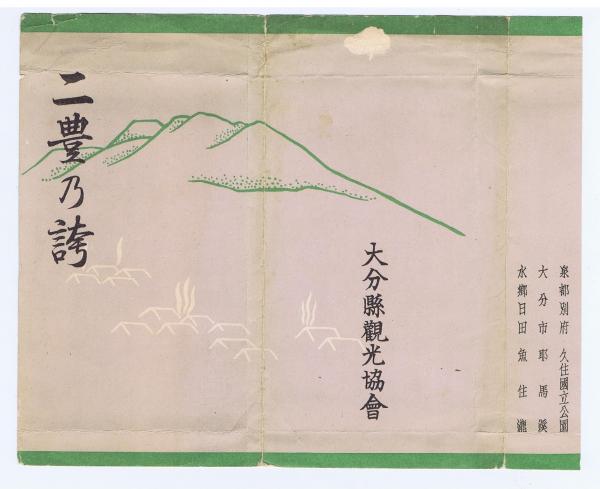 二豊乃誇
大分縣觀光協會
泉都別府 久住國立公園
大分市耶馬溪
水鄉日田魚住瀧